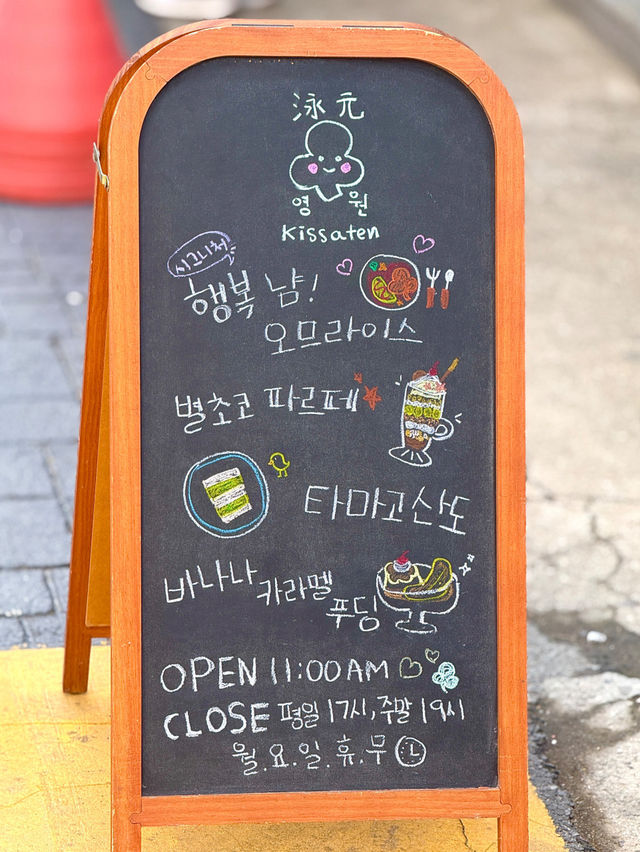 泳元
영원
Kissaten
시그니처
행복 냠!
오므라이스
별초코 파르페
타마고산도
바나나 카라멜
푸딩
OPEN 11:00AM
CLOSE 평일 17시, 주말 19시
월.요.일.휴.무